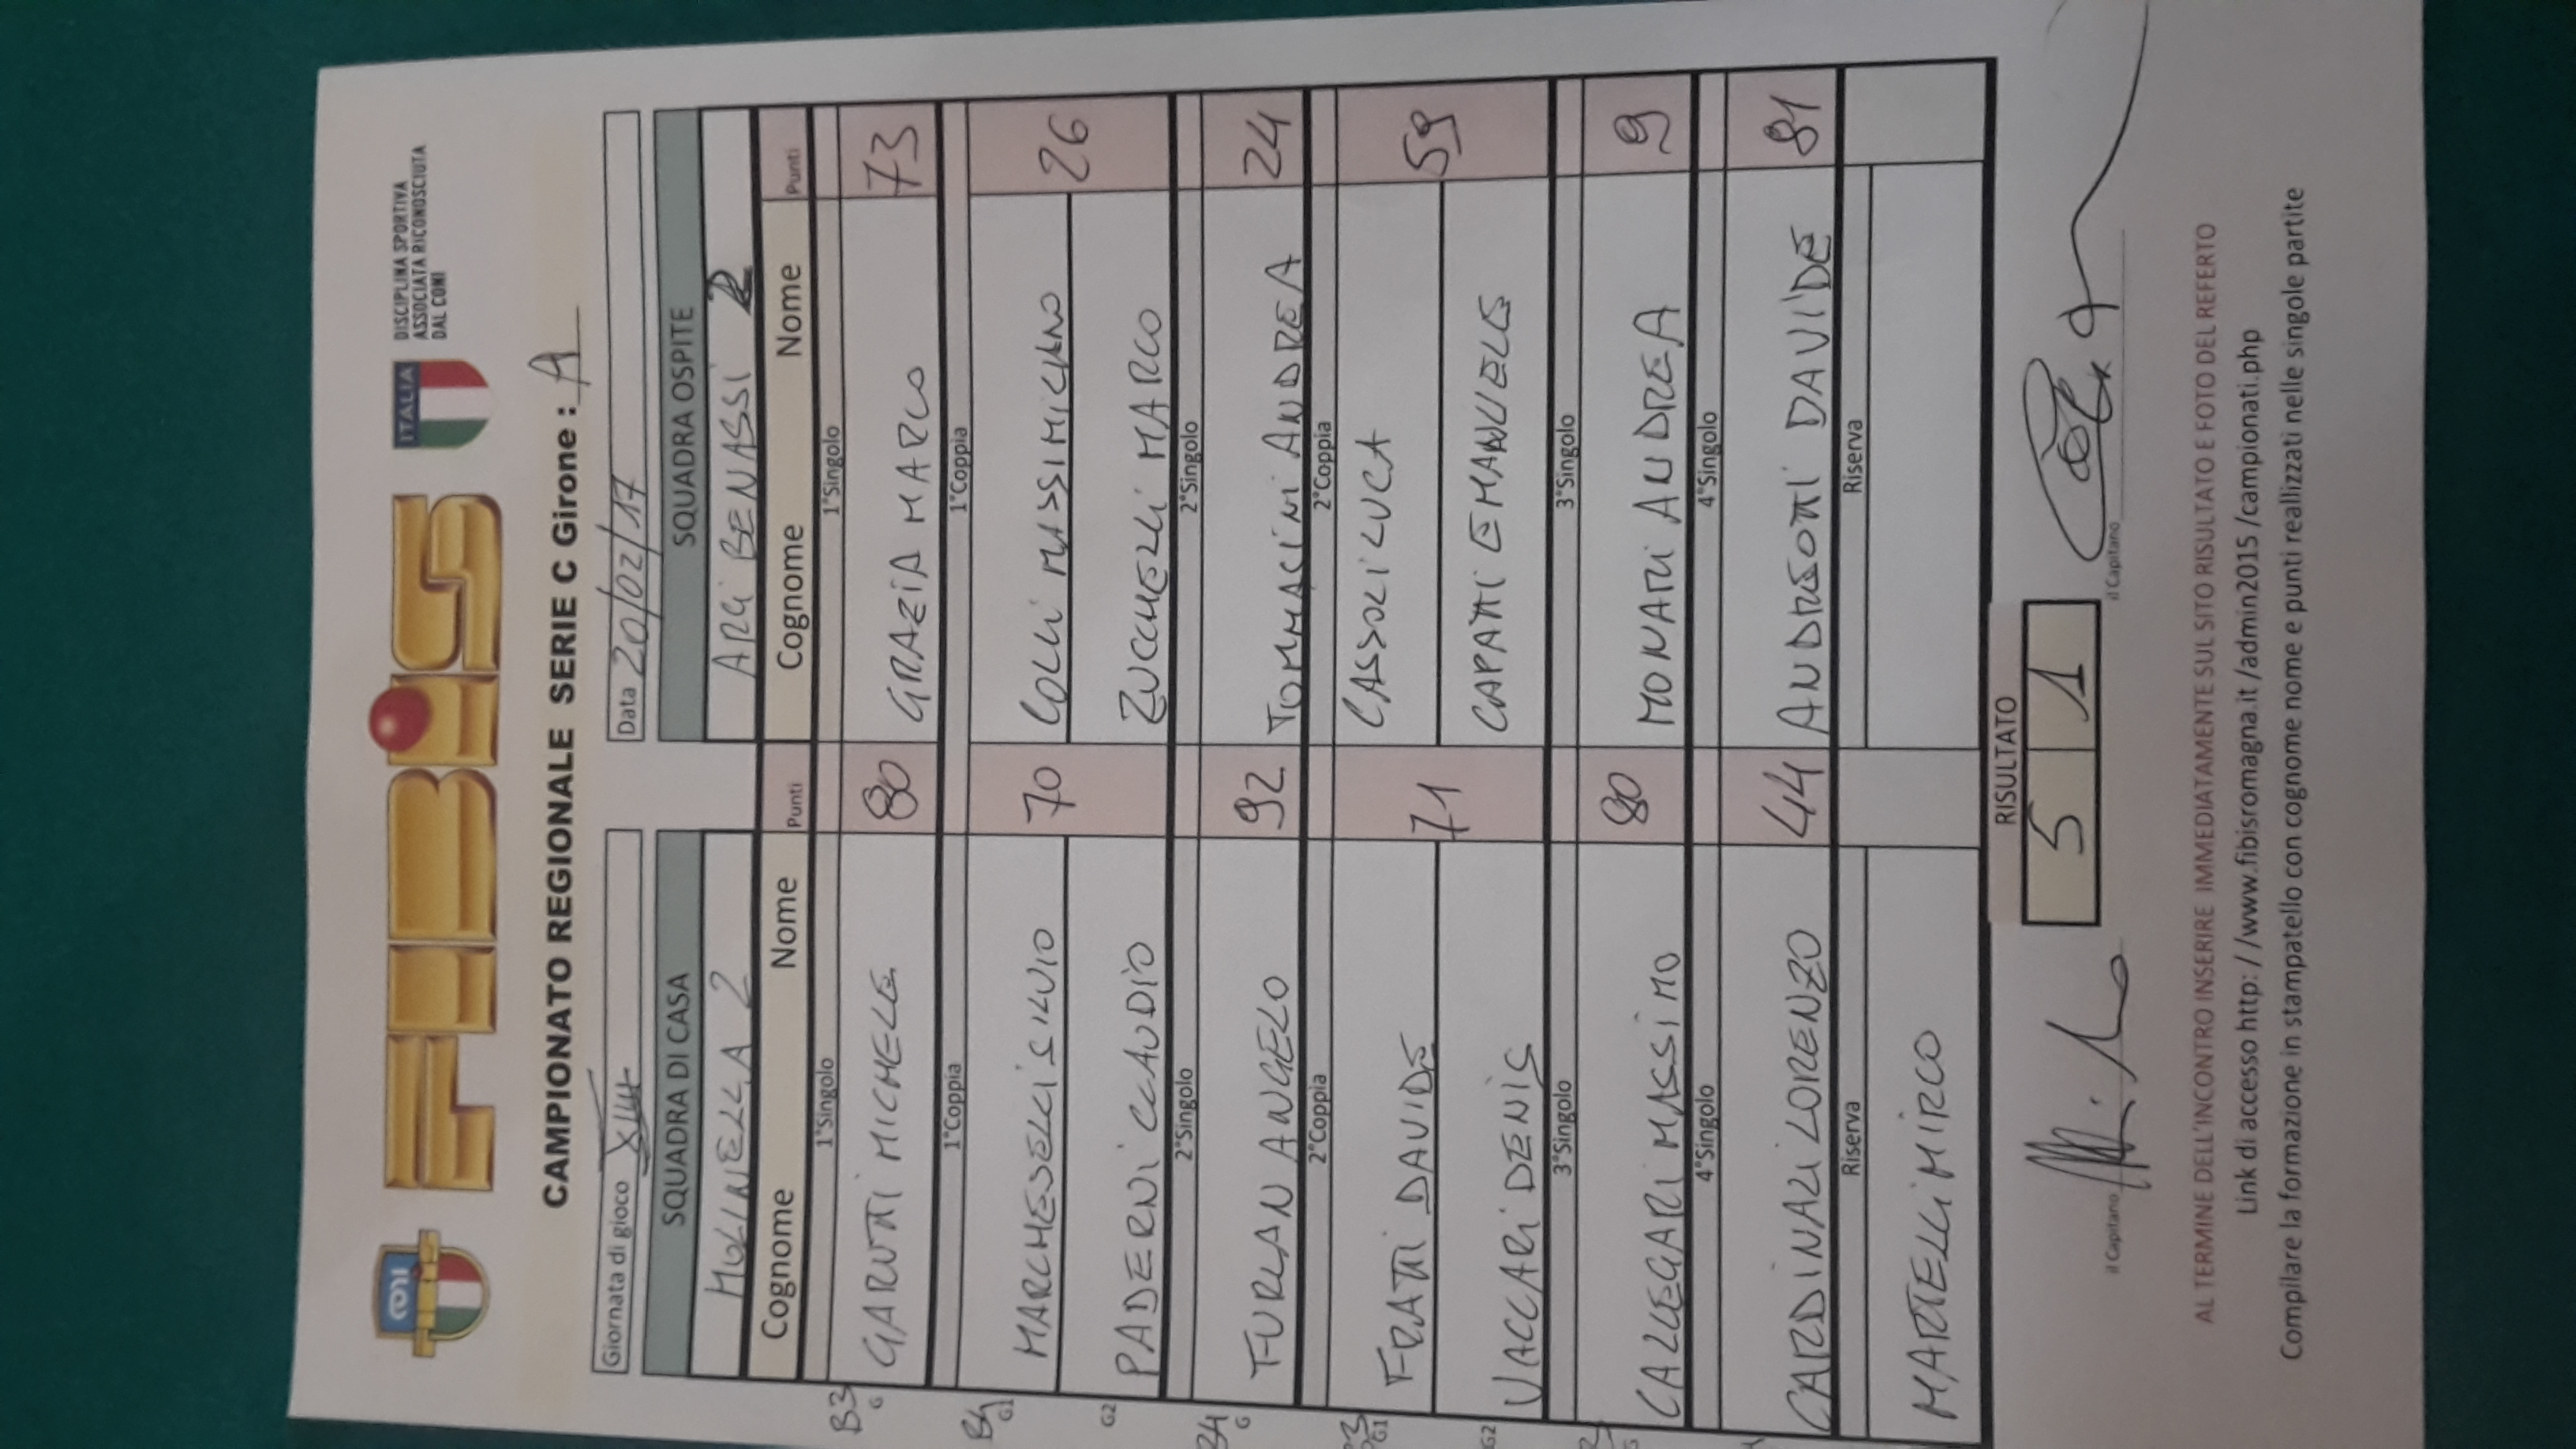 CONI
FIBiS
ITALIA
DISCIPLINA SPORTIVA
ASSOCIATA RICONOSCIUTA
DAL CONI
CAMPIONATO REGIONALE SERIE C Girone : A
Giornata di gioco
Data 20/02/17
SQUADRA DI CASA SQUADRA OSPITE
MOLINELLA 2 ARCI BENASSI 2
Cognome Nome Punti Cognome Nome Punti
1°Singolo 1°Singolo
B3
G GARUTTI MICHELE 80 GRAZIA MARCO 73
1°Coppia 1°Coppia
B4
G1 MARCHESELLI SILVIO 70 COLLI MASSIMILIANO 26
G2 PADERNI CLAUDIO ZUCCHELLI MARCO
2°Singolo 2°Singolo
G FURLAN ANGELO 92 TOMMASINI ANDREA 24
2°Coppia 2°Coppia
G1 FRATTI DAVIDE 71 CASSOLI LUCA 59
G2 VACCARI DENIS CAPATTI EMANUELE
3°Singolo 3°Singolo
CALLEGARI MASSIMO 80 MONARI ANDREA 9
4°Singolo 4°Singolo
CARDINALI LORENZO 44 ANDREOTTI DAVIDE 81
Riserva Riserva
MARTELLI MIRCO
RISULTATO
5 1
il Capitano il Capitano
AL TERMINE DELL'INCONTRO INSERIRE IMMEDIATAMENTE SUL SITO RISULTATO E FOTO DEL REFERTO
Link di accesso http: / /www.fibisromagna.it /admin2015 /campionati.php
Compilare la formazione in stampatello con cognome nome e punti reallizzati nelle singole partite